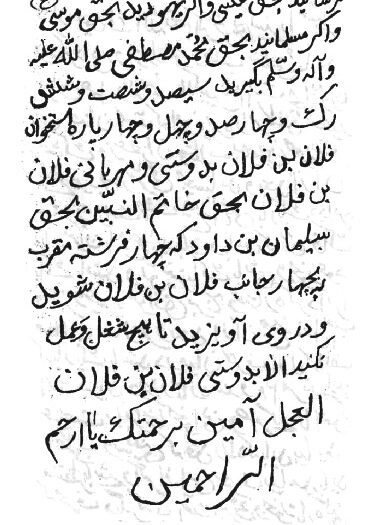 بحق عیسی واکر یهودیید بحق موسی
واکر مسلمانید بحق محمد مصطفی صلی الله علیه
وآله وسلم بگیرید سیصد و شصت و شش
رک و چهار صد و چهل و چهار پاره استخوان
فلان بن فلان بدوستی و مهربانی فلان
بن فلان بحق خاتم النبیین بحق
سلیمان بن داود که چهار فرشته مقرب
بچهار جانب فلان بن فلان شوید
و در وی آویزید تا هیچ شغل و عمل
نکنید الا بدوستی فلان بن فلان
العجل آمین برحمتک یا ارحم
الراحمین